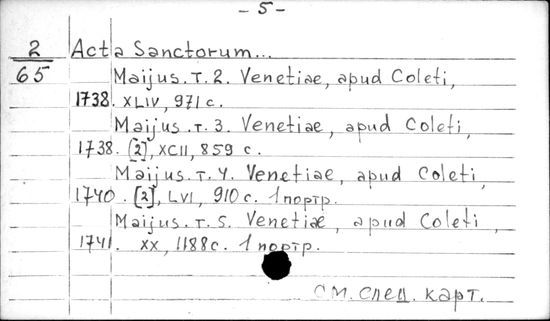 - 5 -
2 Acta Sanctorum...
65 Maijus. т. 2. Venetiae, apud Coleti,
1738. XLIV, 971 с.
Maijus. т. 3. Venetiae, apud Coleti,
1738. [2], XCII, 859 с.
Maijus. т. 4. Venetiae, apud Coleti,
1740. [2], LVI, 910 с. 1 портр.
Maijus. т. 5. Venetiae, apud Coleti,
1741. XX, 1188 с. 1 портр.
см. спец. карт.